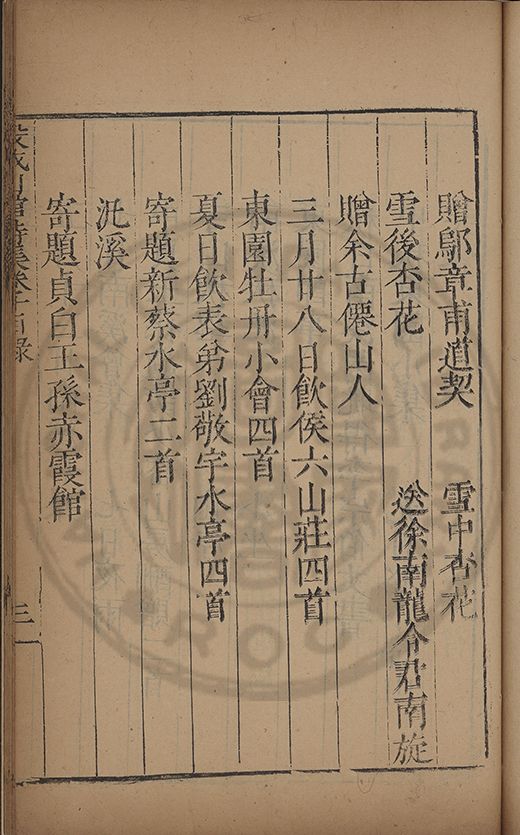 贈鄔章甫道契　雪中杏花
雪後杏花　送徐南龍令君南旋
贈余古僊山人
三月廿八日飲侯六山莊四首
東園牡丹小會四首
夏日飲表弟劉敬宇水亭四首
寄題新蔡水亭二首
沘溪
寄題貞白王孫赤霞館
三